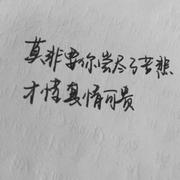 莫非要你尝尽了苦悲
才悟真情可贵